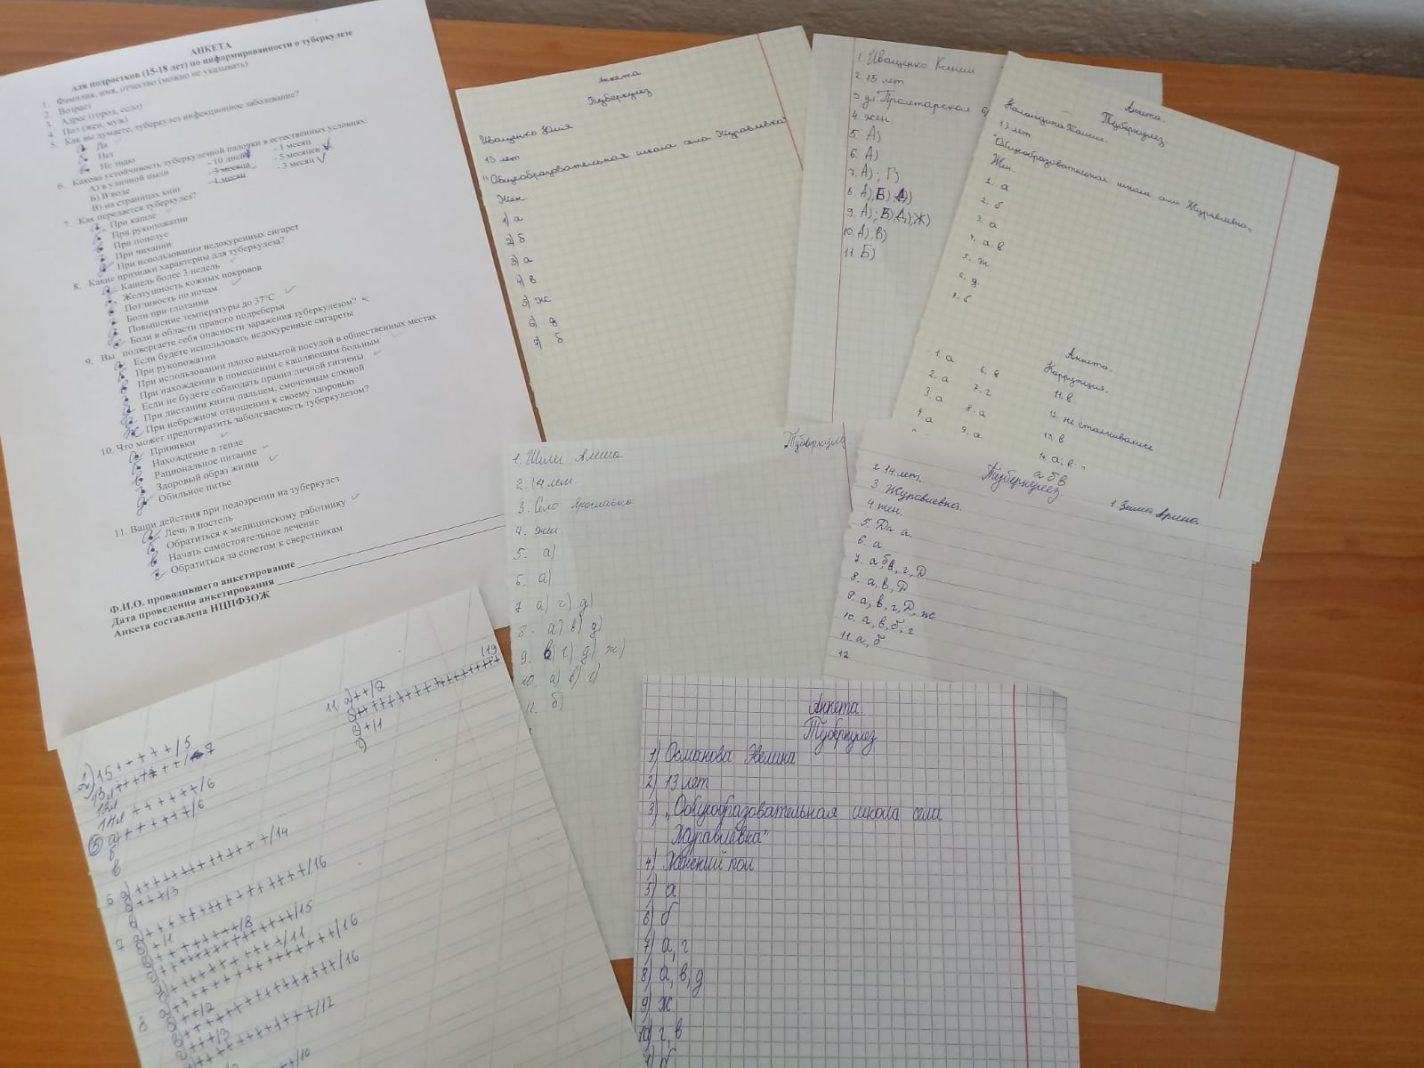 АНКЕТА
для подростков (15-18 лет) по информированности о туберкулезе
1. Фамилия, имя, отчество (можно не указывать)
2. Возраст
3. Адрес (город, село)
4. Пол (жен, муж)
5. Как вы думаете, туберкулез инфекционное заболевание?
Да
Нет
Не знаю
6. Какова устойчивость туберкулезной палочки в естественных условиях:
А) в уличной пыли - 10 дней - 1 месяц
Б) В воде - 3 месяца - 5 месяцев
В) на страницах книг - 4 месяц - 3 месяц
7. Как передается туберкулез?
При кашле
При рукопожатии
При поцелуе
При чихании
При использовании недокуренных сигарет
8. Какие признаки характерны для туберкулеза?
Кашель более 3 недель
Желтушность кожных покровов
Потливость по ночам
Боли при глотании
Повышение температуры до 37°С
Боли в области правого подреберья
9. Вы подвергаете себя опасности заражения туберкулезом?
Если будете использовать недокуренные сигареты
При рукопожатии
При использовании плохо вымытой посудой в общественных местах
При нахождении в помещении с кашляющим больным
Если не будете соблюдать правил личной гигиены
При листании книги пальцем, смоченным слюной
При небрежном отношении к своему здоровью
10. Что может предотвратить заболеваемость туберкулезом?
Прививки
Нахождение в тепле
Рациональное питание
Здоровый образ жизни
Обильное питье
11. Ваши действия при подозрении на туберкулез
Лечь в постель
Обратиться к медицинскому работнику
Начать самостоятельное лечение
Обратиться за советом к сверстникам
Ф.И.О. проводившего анкетирование
Дата проведения анкетирования
Анкета составлена НЦПФЗОЖ
Анкета
Туберкулез
Иващенко Юлия
13 лет
"Общеобразовательная школа села Журавлевка"
Жен.
1) а
2) б
3) а
4) в
5) ж
6) д
7) б
1. Иващенко Ксения
2. 15 лет
3. ул Пролетарская
4. жен
5. А)
6. А)
7. А); Г)
8. А) Б) Д)
9. А); Б) Д), Ж)
10. А), В)
11. Б)
Анкета.
Туберкулез.
13 лет
"Общеобразовательная школа села Журавлевка"
Жен.
1. а
2. б
3. а
4. а. в
5. ж
6. д
7. б
Анкета.
Коррупция.
1. а 6. в 11. в
2. а 7. г 12. не сталкивалась
3. а 8. а 13. в
4. а 9. а 14. а. в.
а б в
Туберкулез
1. Шили Алина
2. 14 лет.
3. Село Ярославка
4. жен
5. а)
6. а)
7 а) г) д)
8. а) в) д)
9. в) г) д) ж)
10. а) в) г)
11. б)
Туберкулез.
1 Заика Арина
2 14 лет.
3. Журавлевка.
4. жен.
5. Да а.
6. а
7. а, б, в, г, д
8. а, в, д
9. а, в, г, д, ж
10. а, в, б, г
11. а, б
12
2) 15+++++/5
14л ++++++/6
5 а) ++++++/6
б
в
++++++++++++++/14
+++/3
/16
/1
/8
/15
/11
/16
/16
/2
/3
/12
/10
11. а) ++/2
в) +/1
г)
Анкета.
Туберкулез
1) Османова Эвелина
2) 13 лет
3) „Общеобразовательная школа села
Журавлевка"
4) Женский пол
5) а
6) б
7) а, г
8) а, в, д
9) ж
10) г, в
11) б